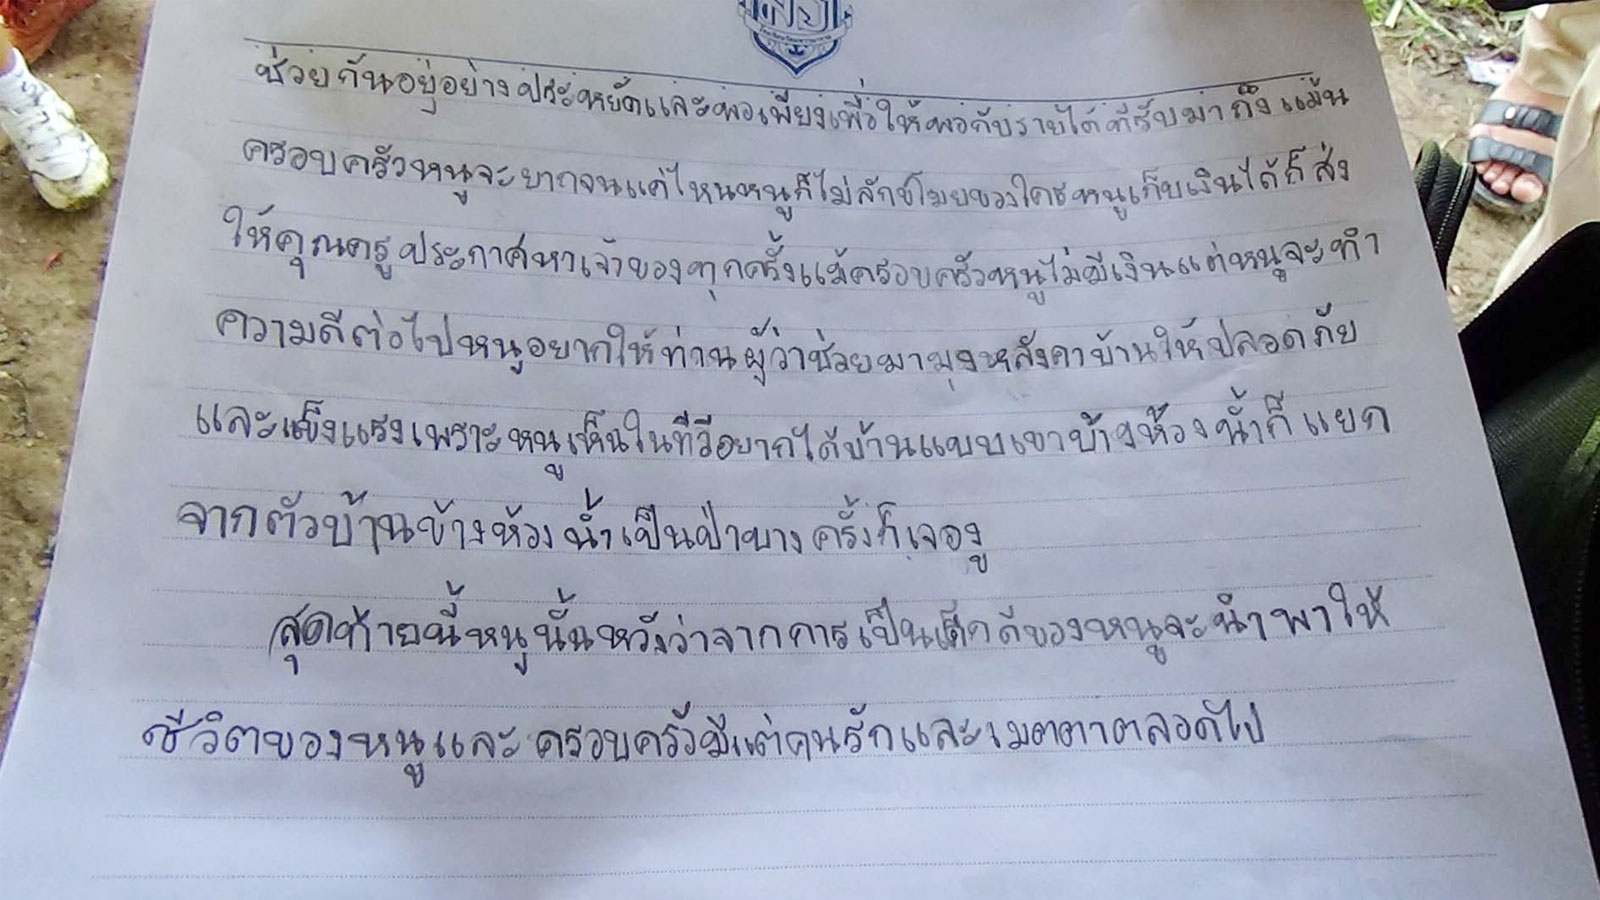 ช่วยกันอยู่อย่างประหยัดและพอเพียงเพื่อให้พอกับรายได้ที่รับมาถึงแม้น
ครอบครัวหนูจะยากจนแค่ไหนหนูก็ไม่ลักขโมยของใครหนูเก็บเงินได้ก็ส่ง
ให้คุณครูประกาศหาเจ้าของทุกครั้งแม้ครอบครัวหนูไม่มีเงินแต่หนูจะทำ
ความดีต่อไปหนูอยากให้ท่านผู้ว่าช่วยมามุงหลังคาบ้านให้ปลอดภัย
และแข็งแรงเพราะหนูเห็นในทีวีอยากได้บ้านแบบเขาบ้างห้องน้ำก็แยก
จากตัวบ้านข้างห้องน้ำเป็นป่าบางครั้งก็เจองู
สุดท้ายนี้หนูนั้นหวังว่าจากการเป็นเด็กดีของหนูจะนำพาให้
ชีวิตของหนูและครอบครัวมีแต่คนรักและเมตตาตลอดไป